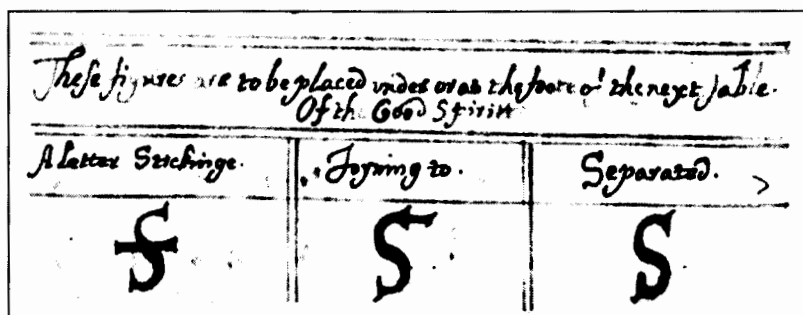 These figures are to be placed vnder or at the foote of the next Table.
Of the Good Spiritt
A letter Strikinge.
Joyning to.
Separated.
S
S
S